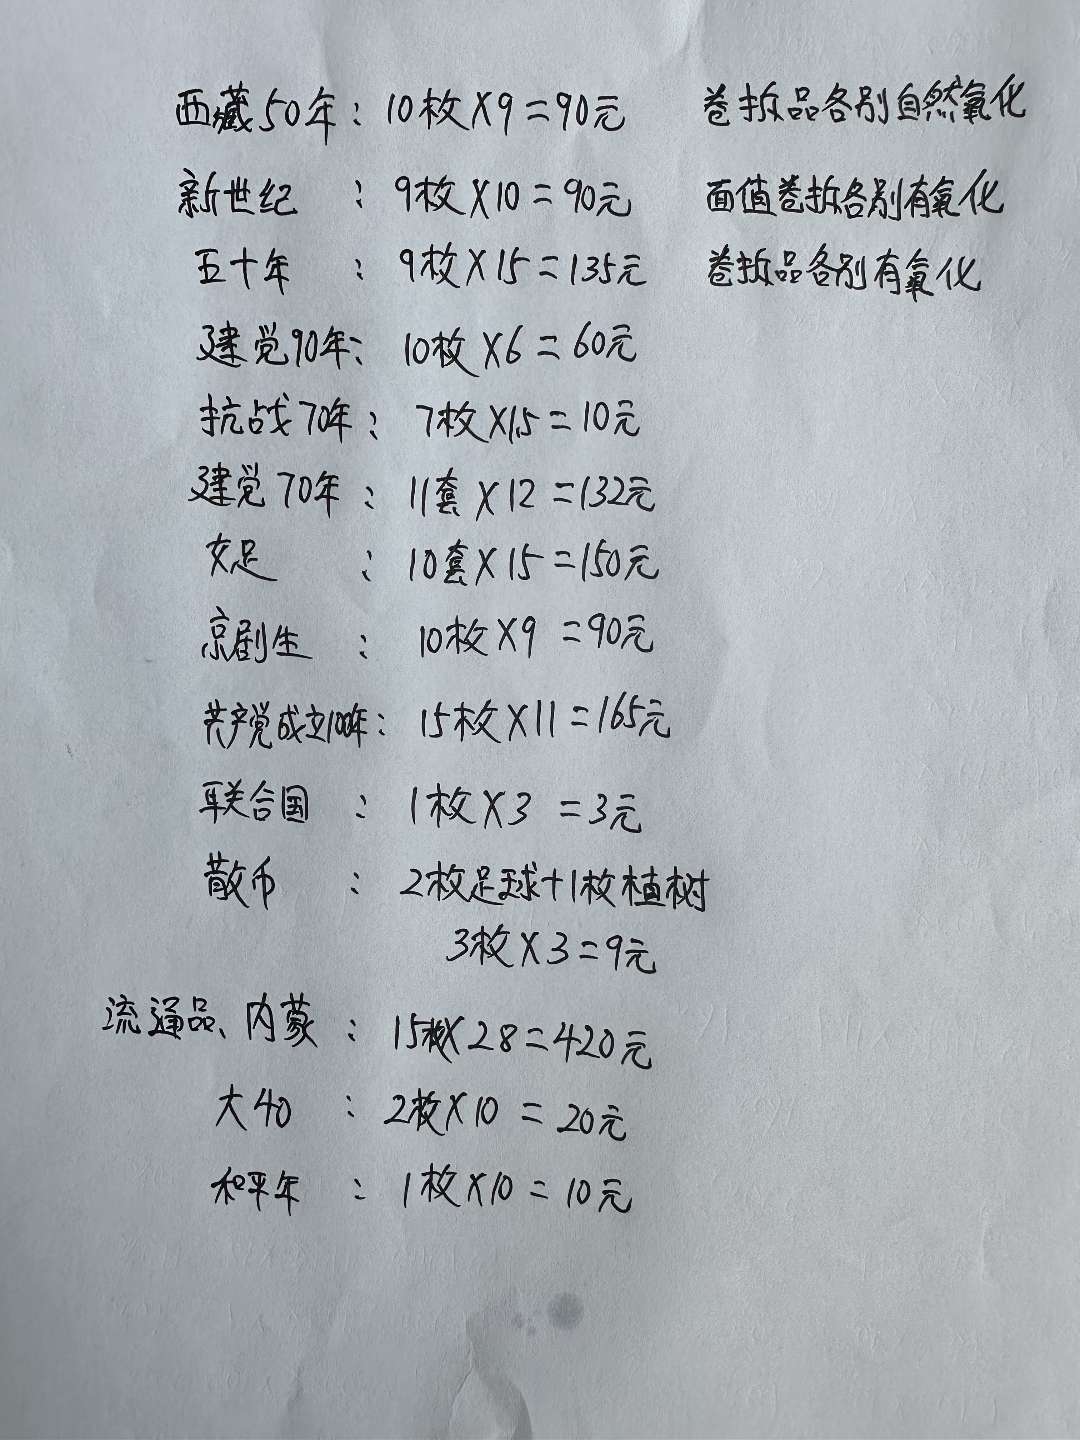 西藏50年：10枚X9=90元 卷拆品各别自然氧化
新世纪：9枚X10=90元 面值卷拆各别有氧化
五十年：9枚X15=135元 卷拆品各别有氧化
建党90年：10枚X6=60元
抗战70年：7枚X1.5=10元
建党70年：11套X12=132元
女足：10套X15=150元
京剧生：10枚X9=90元
共产党成立100年：15枚X11=165元
联合国：1枚X3=3元
散币：2枚足球+1枚植树
3枚X3=9元
流通品、内蒙：15枚X28=420元
大40：2枚X10=20元
和平年：1枚X10=10元